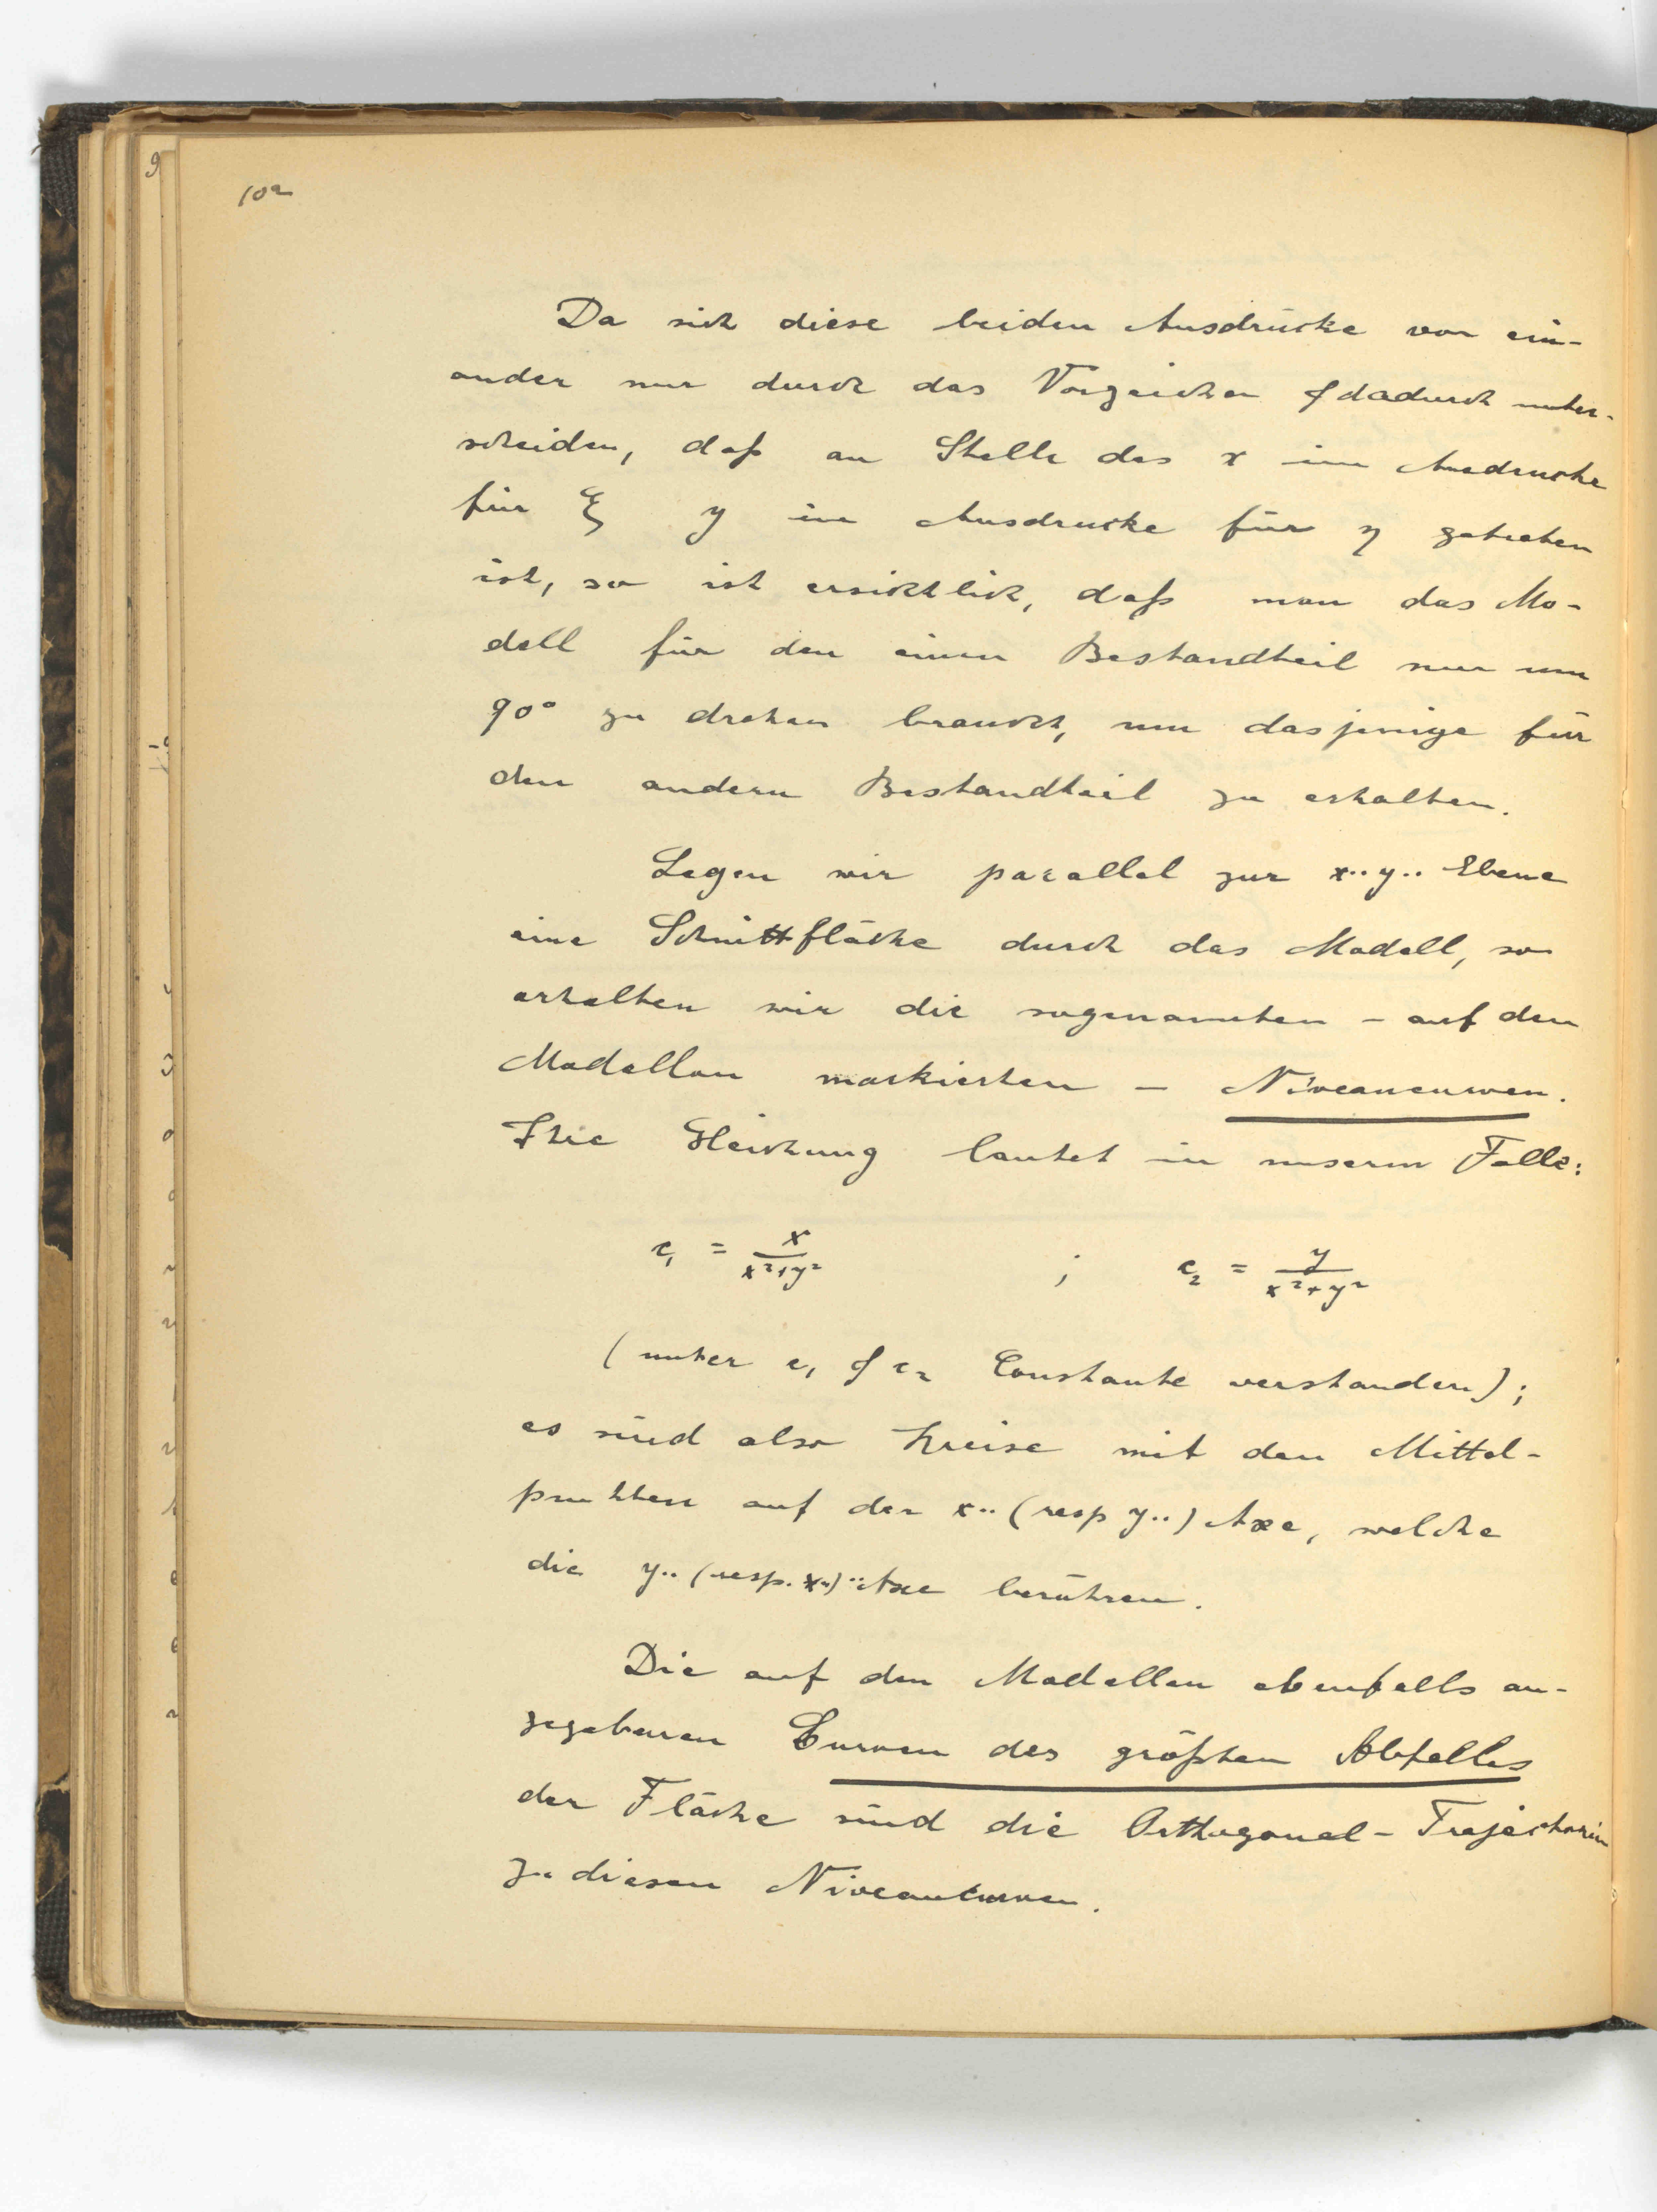 10a
Da sich diese beiden Ausdrücke von ein-
ander nur durch das Vorzeichen & dadurch unter-
scheiden, daß an Stelle des x im Ausdrucke
für ξ y im Ausdrucke für η getreten
ist, so ist ersichtlich, daß man das Mo-
dell für den einen Bestandteil nur um
90° zu drehen braucht, um dasjenige für
den andern Bestandteil zu erhalten.
Legen wir parallel zur x.. y.. Ebene
eine Schnittfläche durch das Modell, so
erhalten wir die sogenannten – auf den
Modellen markierten – Niveaucurven.
Ihre Gleichung lautet in unserm Falle:
c₁ = x/(x²+y²) ; c₂ = y/(x²+y²)
(unter c₁ & c₂ Constante verstanden);
es sind also Kreise mit den Mittel-
punkten auf der x.. (resp y..) Axe, welche
die y.. (resp. x..) Axe berühren.
Die auf den Modellen ebenfalls an-
gegebenen Curven des größten Abfalles
der Fläche sind die Orthogonal-Trajectorien
zu diesen Niveaucurven.